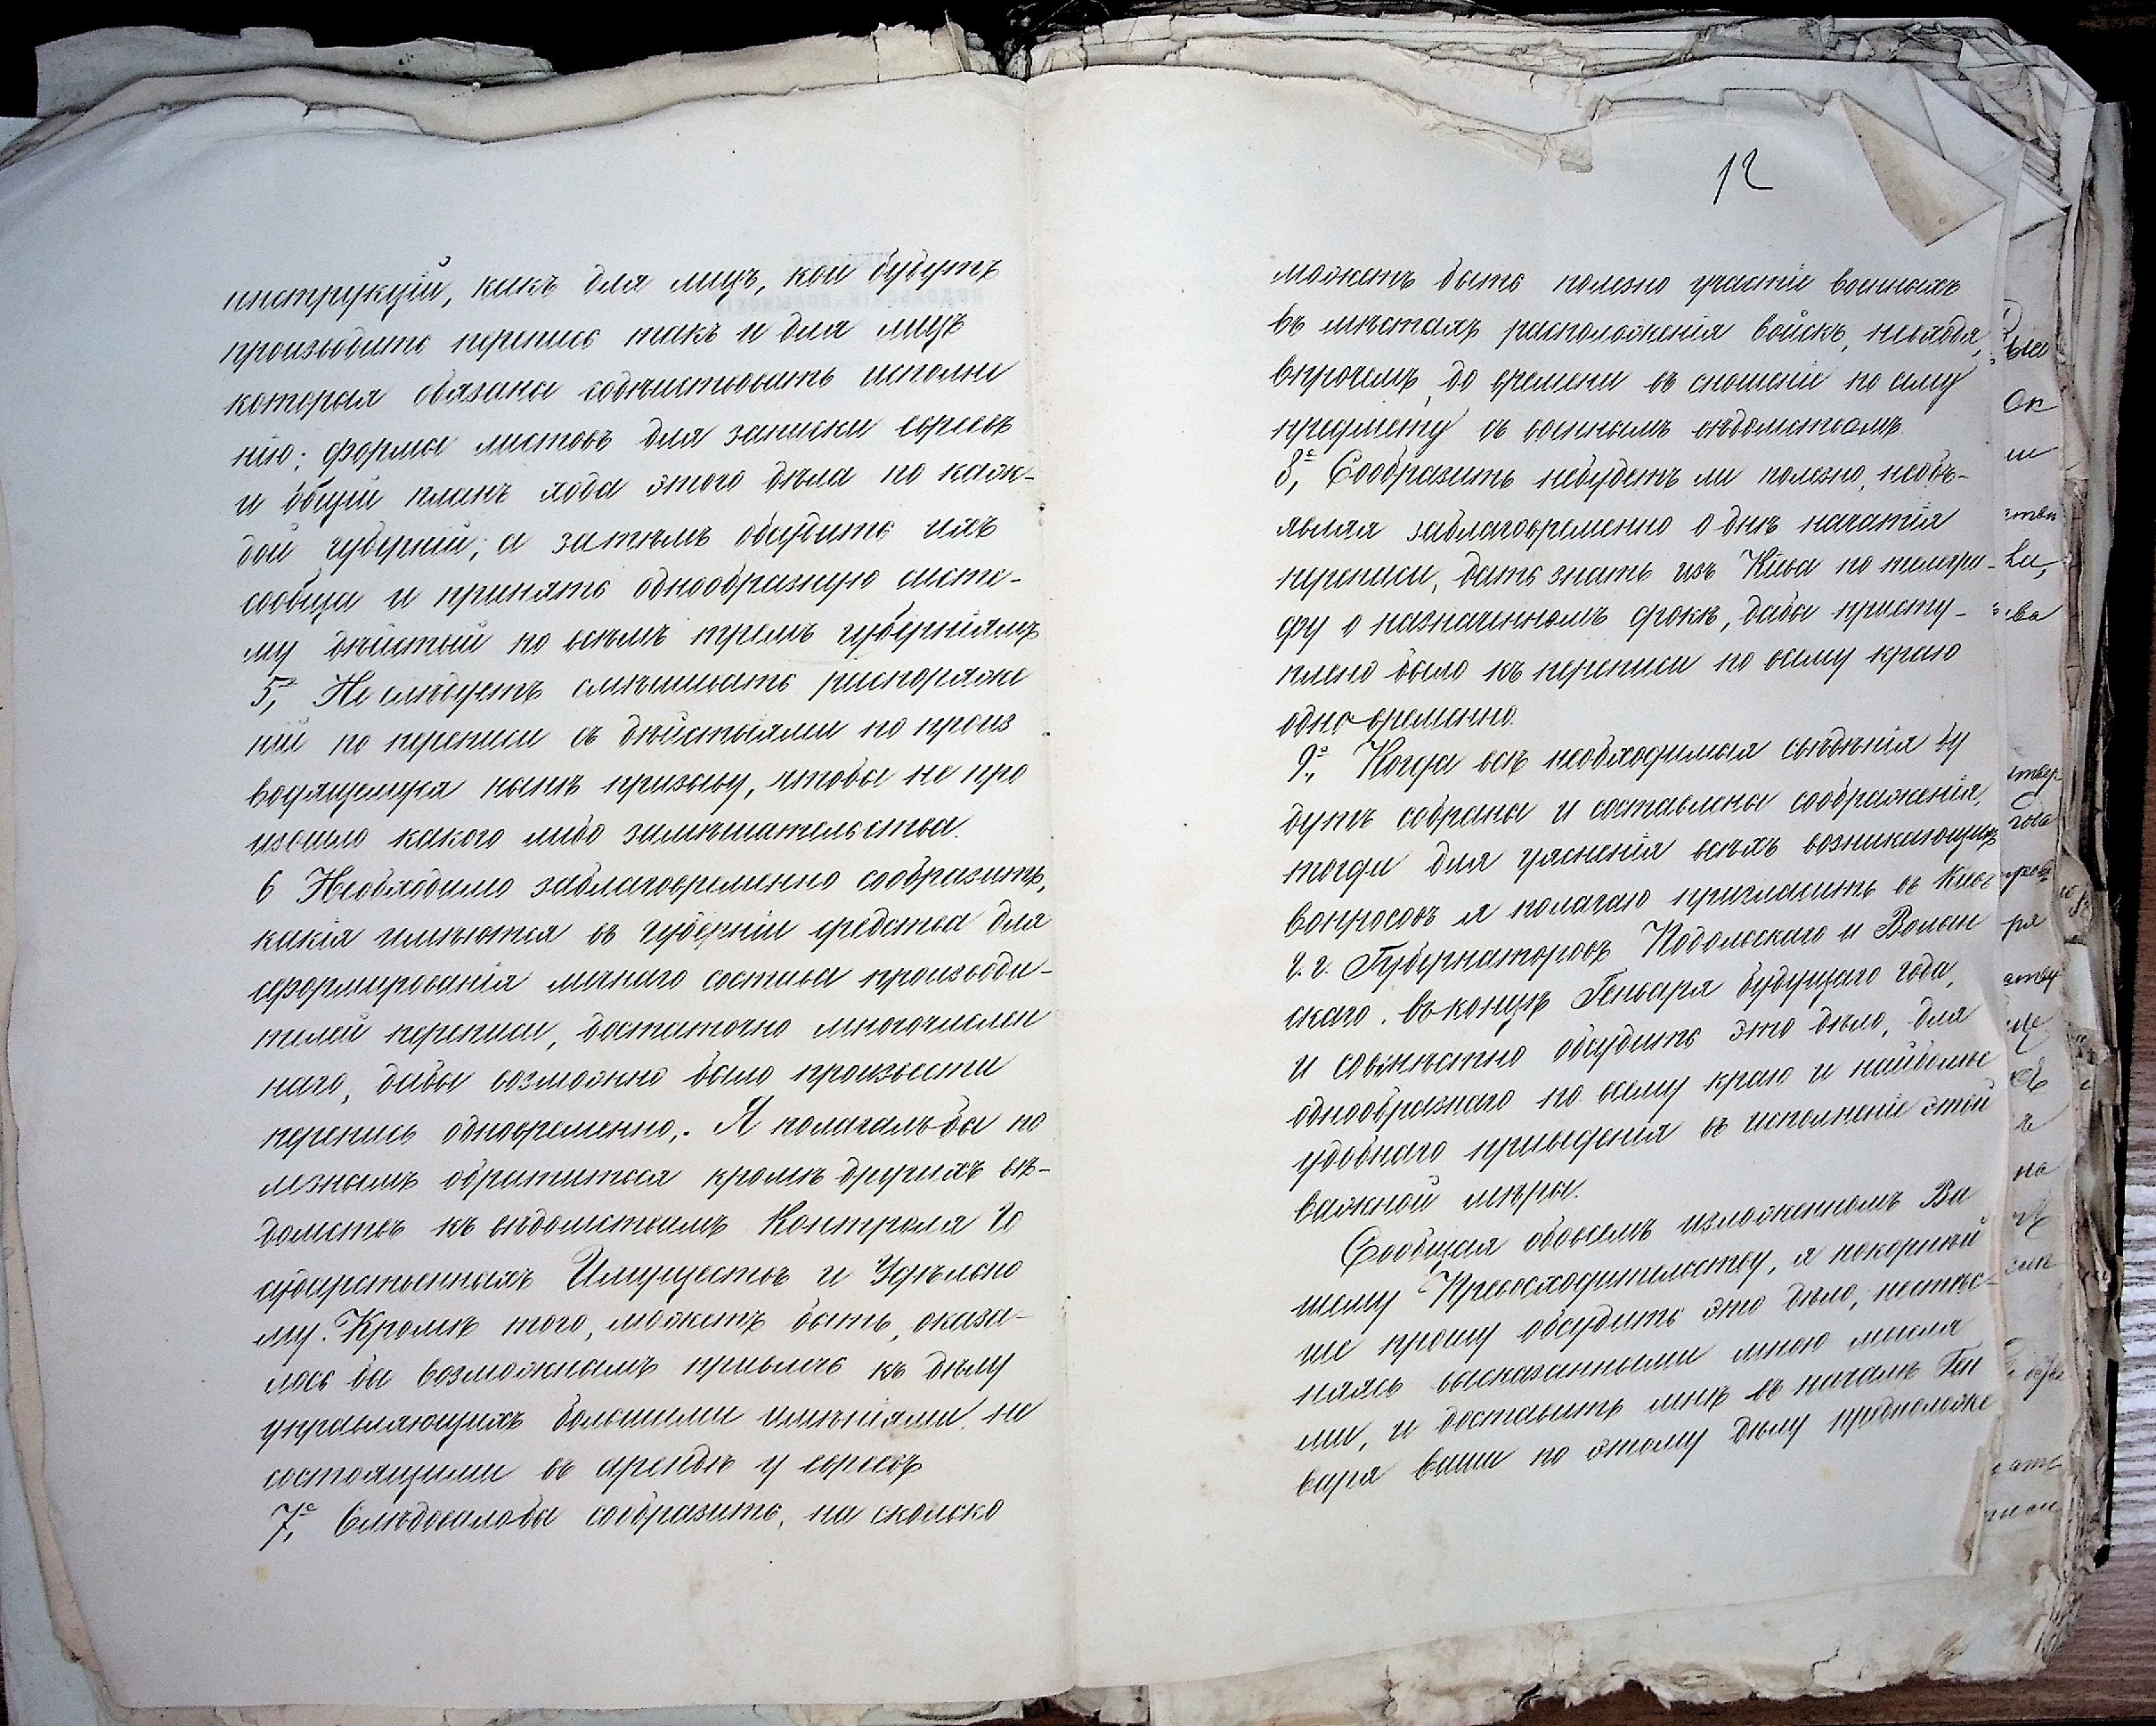 инструкцій, какъ для лицъ, кои будутъ
производить перепись такъ и для лицъ
которыя обязаны содѣйствовать исполне
нію; формы листовъ для записки евреевъ
и общій планъ хода этого дѣла по каж-
дой губерніи; а затѣмъ обсудить ихъ
сообща и принять однообразную систе-
му дѣйствій по всѣмъ тремъ губерніямъ
5, Не слѣдуетъ смѣшивать распоряже
ній по переписи съ дѣйствіями по произ
водящемуся нынѣ призыву, чтобы не про
изошло какого либо замѣшательства.
6 Необходимо заблаговременно сообразить,
какія имѣются въ губерніи средства для
сформированія личнаго состава производи-
телей переписи, достаточно многочислен
наго, дабы возможно было произвести
перепись одновременно. Я полагалъ бы по
лезнымъ обратиться кромѣ другихъ вѣ-
домствъ къ вѣдомствамъ Контроля Го
сударственныхъ Имуществъ и Удѣльно
му. Кромѣ того, можетъ быть, оказа-
лось бы возможнымъ привлечь къ дѣлу
управляющихъ большими имѣніями не
состоящими въ арендѣ у евреевъ
7, Слѣдовало бы сообразить, на сколько
12
можетъ быть полезно участіе военныхъ
въ мѣстахъ расположенія войскъ, невходя,
впрочемъ, до времени въ сношеніе по сему
предмету съ военнымъ вѣдомствомъ.
8, Сообразить небудетъ ли полезно, необъ-
являя заблаговременно о днѣ начатія
переписи, дать знать изъ Кіева по телегра-
фу о назначенномъ срокѣ, дабы присту-
плено было къ переписи по всему краю
одновременно.
9, Когда всѣ необходимыя свѣдѣнія бу
дутъ собраны и составлены соображенія,
тогда для уясненія всѣхъ возникающихъ
вопросовъ я полагаю пригласить въ Кіевъ
г.г. Губернаторовъ Подольскаго и Волын
скаго въ концѣ Генваря будущаго года,
и совмѣстно обсудить это дѣло, для
однообразнаго по всему краю и наиболѣе
удобнаго приведенія въ исполненіе этой
важной мѣры.
Сообщая обо всемъ изложенномъ Ва
шему Превосходительству, я покорнѣй
ше прошу обсудить это дѣло, нестѣс-
няясь высказанными мною мысля
ми, и доставить мнѣ въ началѣ Ген
варя ваши по этому дѣлу предположе